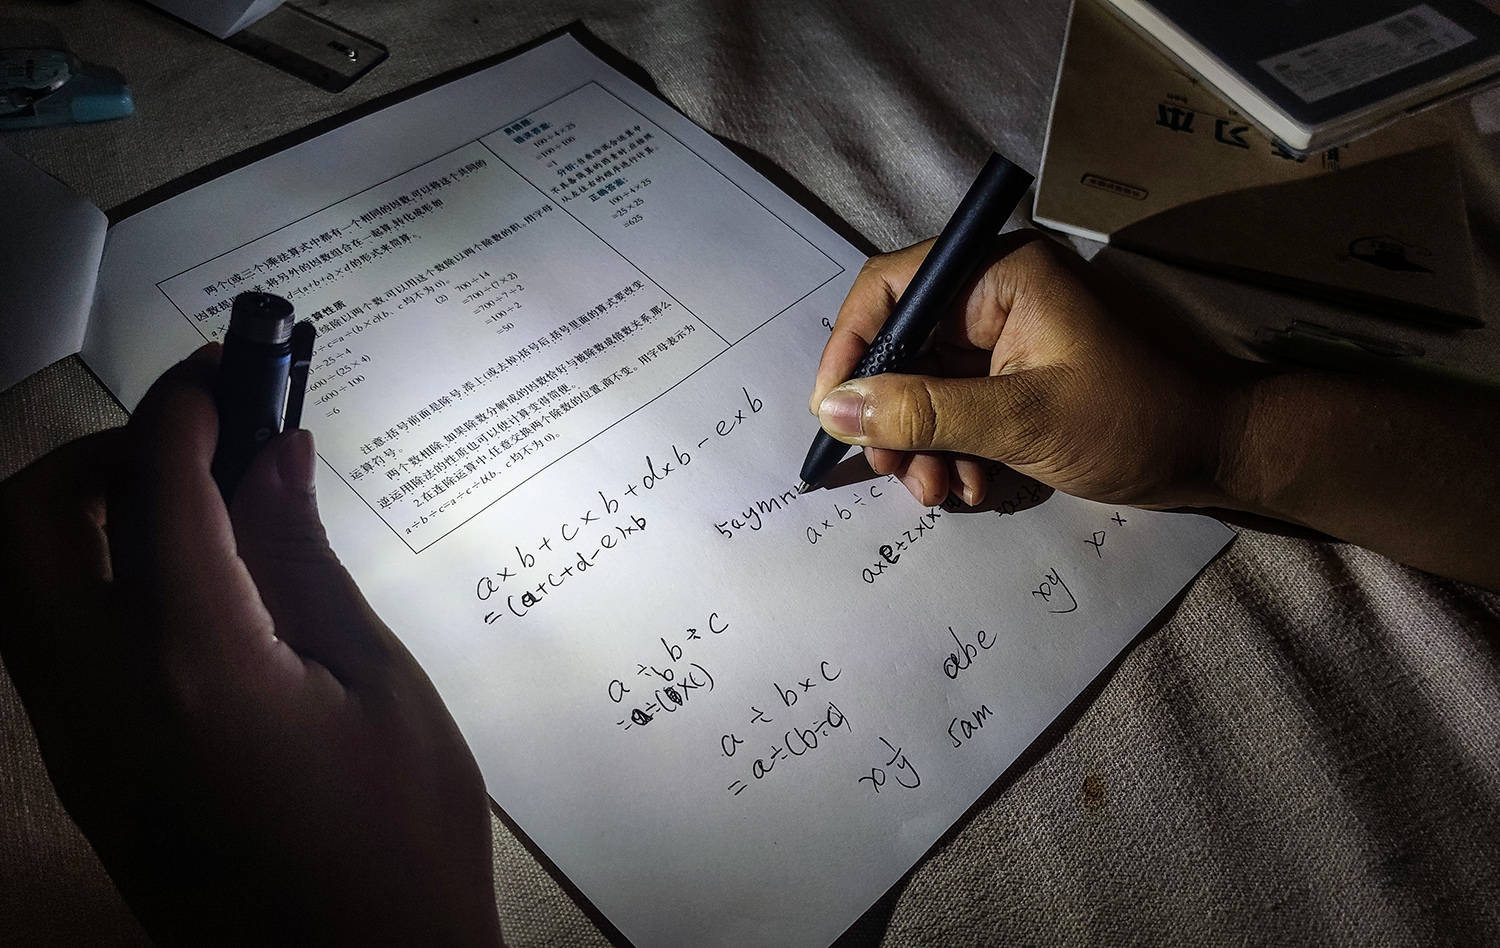 两个(或三个)乘法算式中都有一个相同的因数,可以将这个共同的
因数提出来,将另外的因数组合在一起算,转化成形如
d=(a+b+c)×d的形式来简算。
算性质
续除以两个数,可以用这个数除以两个除数的积。用字母
÷c=a÷(b×c)(b、c均不为0)。
÷25÷4
=600÷(25×4)
=600÷100
=6
(2) 700÷14
=700÷(7×2)
=700÷7÷2
=100÷2
=50
注意:括号前面是除号,添上(或去掉)括号后,括号里面的算式要改变
运算符号。
两个数相除,如果除数分解成的因数恰好与被除数成倍数关系,那么
逆运用除法的性质也可以使计算变得简便。
2.在连除运算中,任意交换两个除数的位置,商不变。用字母表示为
a÷b÷c=a÷c÷b(b、c均不为0)。
易错题:
错误答案:
100÷4×25
=100÷100
=1
分析:在乘除混合运算中
不具备简算的因素时,应按照
从左往右的顺序进行计算。
正确答案:
100÷4×25
=25×25
=625
a×b+c×b+d×b-e×b
=(a+c+d-e)×b
a÷b÷c
=a÷(b×c)
a÷b×c
=a÷(b÷c)
5aymn
a×b÷c÷
xy
abe
5am
习本